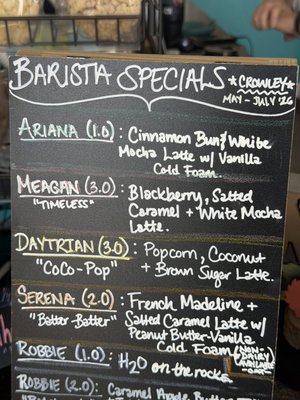 BARISTA SPECIALS *CROWLEY*
MAY - JULY '26
ARIANA (1.0): Cinnamon Bun & White
Mocha Latte w/ Vanilla
Cold Foam.
MEAGAN (3.0): Blackberry, Salted
"TIMELESS" Caramel + White Mocha
Latte.
DAYTRIAN (3.0): Popcorn, Coconut
"COCO-POP" + Brown Sugar Latte.
SERENA (2.0): French Madeline +
"Batter-Batter" Salted Caramel Latte w/
Peanut Butter-Vanilla
Cold Foam (NON-
DAIRY
AVAILABLE
ROBBIE (1.0): H2O on the rocks
ROBBIE (2.0): Caramel Apple Butter